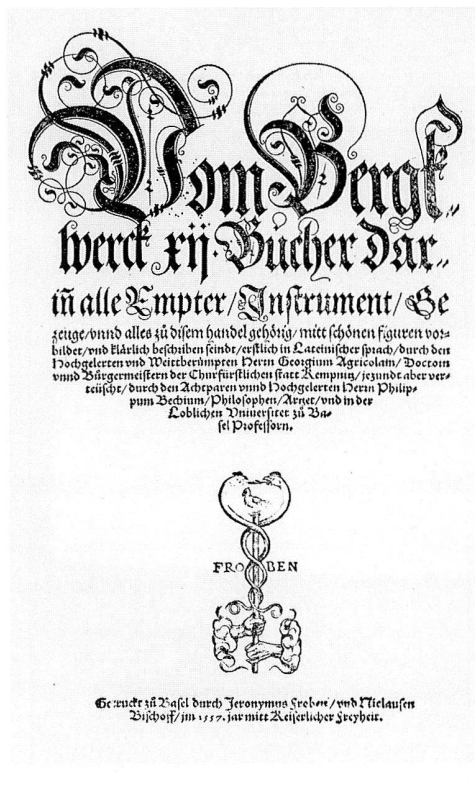 Vom Bergk⸗
werck xij. Bücher dar⸗
iñ alle Empter/ Instrument/ Ge
zeuge/ vnnd alles zů disem handel gehörig/ mitt schönen figuren vor⸗
bildet/ vnd klärlich beschriben seindt/ erstlich in Lateinischer sprach/ durch den
Hochgelerten vnd Weittberümpten Herrn Georgium Agricolam/ Doctorn
vnnd Bürgermeistern der Churfürstlichen statt Kempnitz/ jezundt aber ver⸗
teüscht/ durch den Achtparen vnnd Hochgelerten Herrn Philip⸗
pum Bechium/ Philosophen/ Artzet/ vnd in der
Loblichen Vniuersitet zů Ba⸗
sel Professorn.
FRO BEN
Getruckt zů Basel durch Jeronymus Froben/ vnd Niclausen
Bischoff/ im 1557. jar mitt Keiserlicher Freyheit.